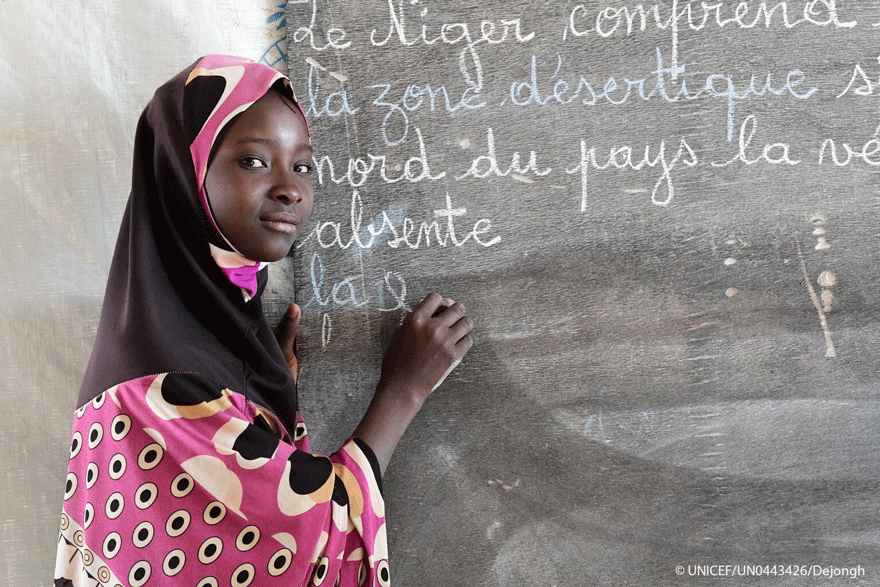 Le Niger comprend
la zone désertique si
nord du pays la vé
absente
la
© UNICEF/UN0443426/Dejongh